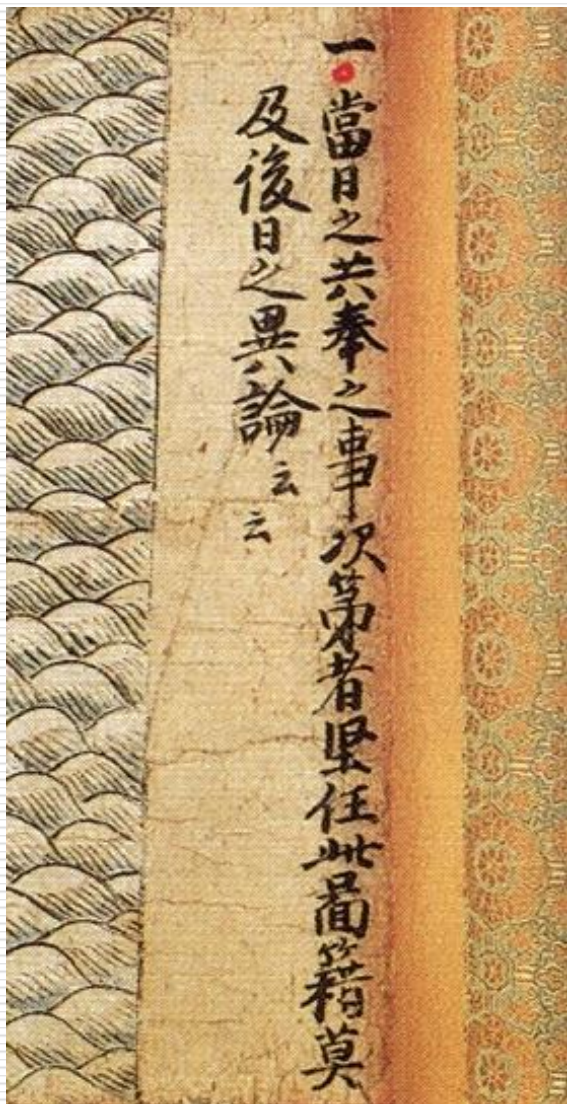 一當日之共奉之事次第者坚任此啚籍莫
及後日之異論云云